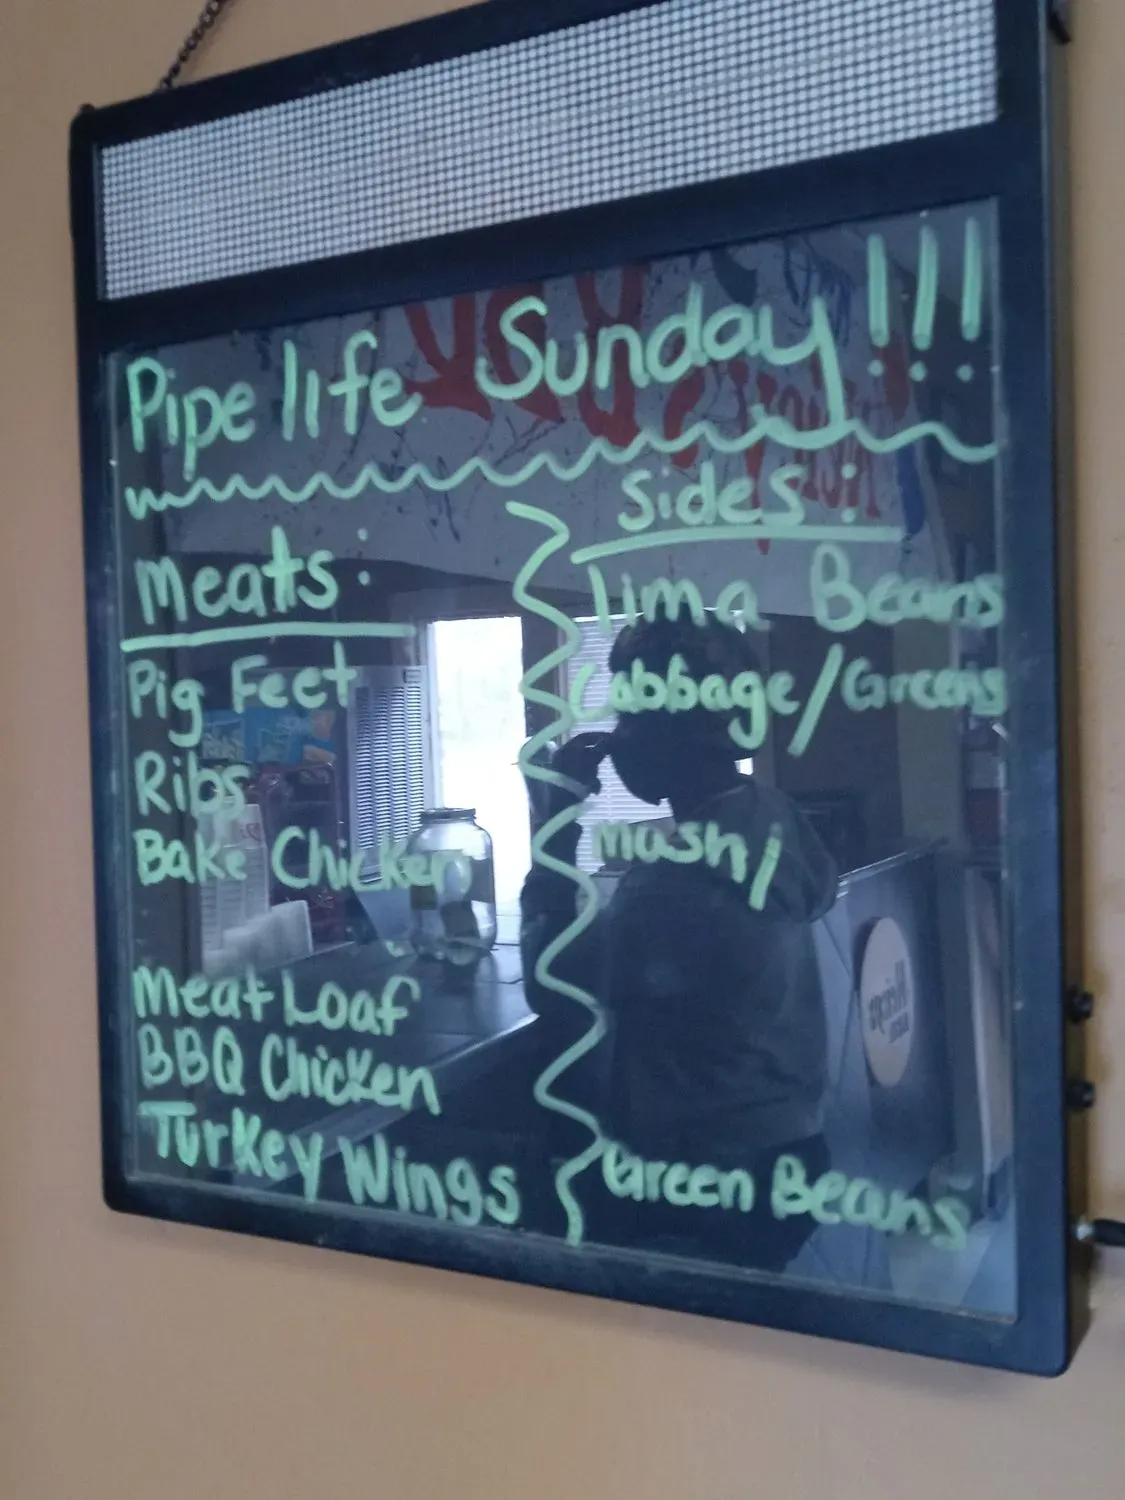 Pipe life Sunday!!!
Meats:
Pig Feet
Ribs
Bake Chicken
Meat Loaf
BBQ Chicken
Turkey Wings
Sides:
lima Beans
Cabbage/Greens
mash/
Green Beans